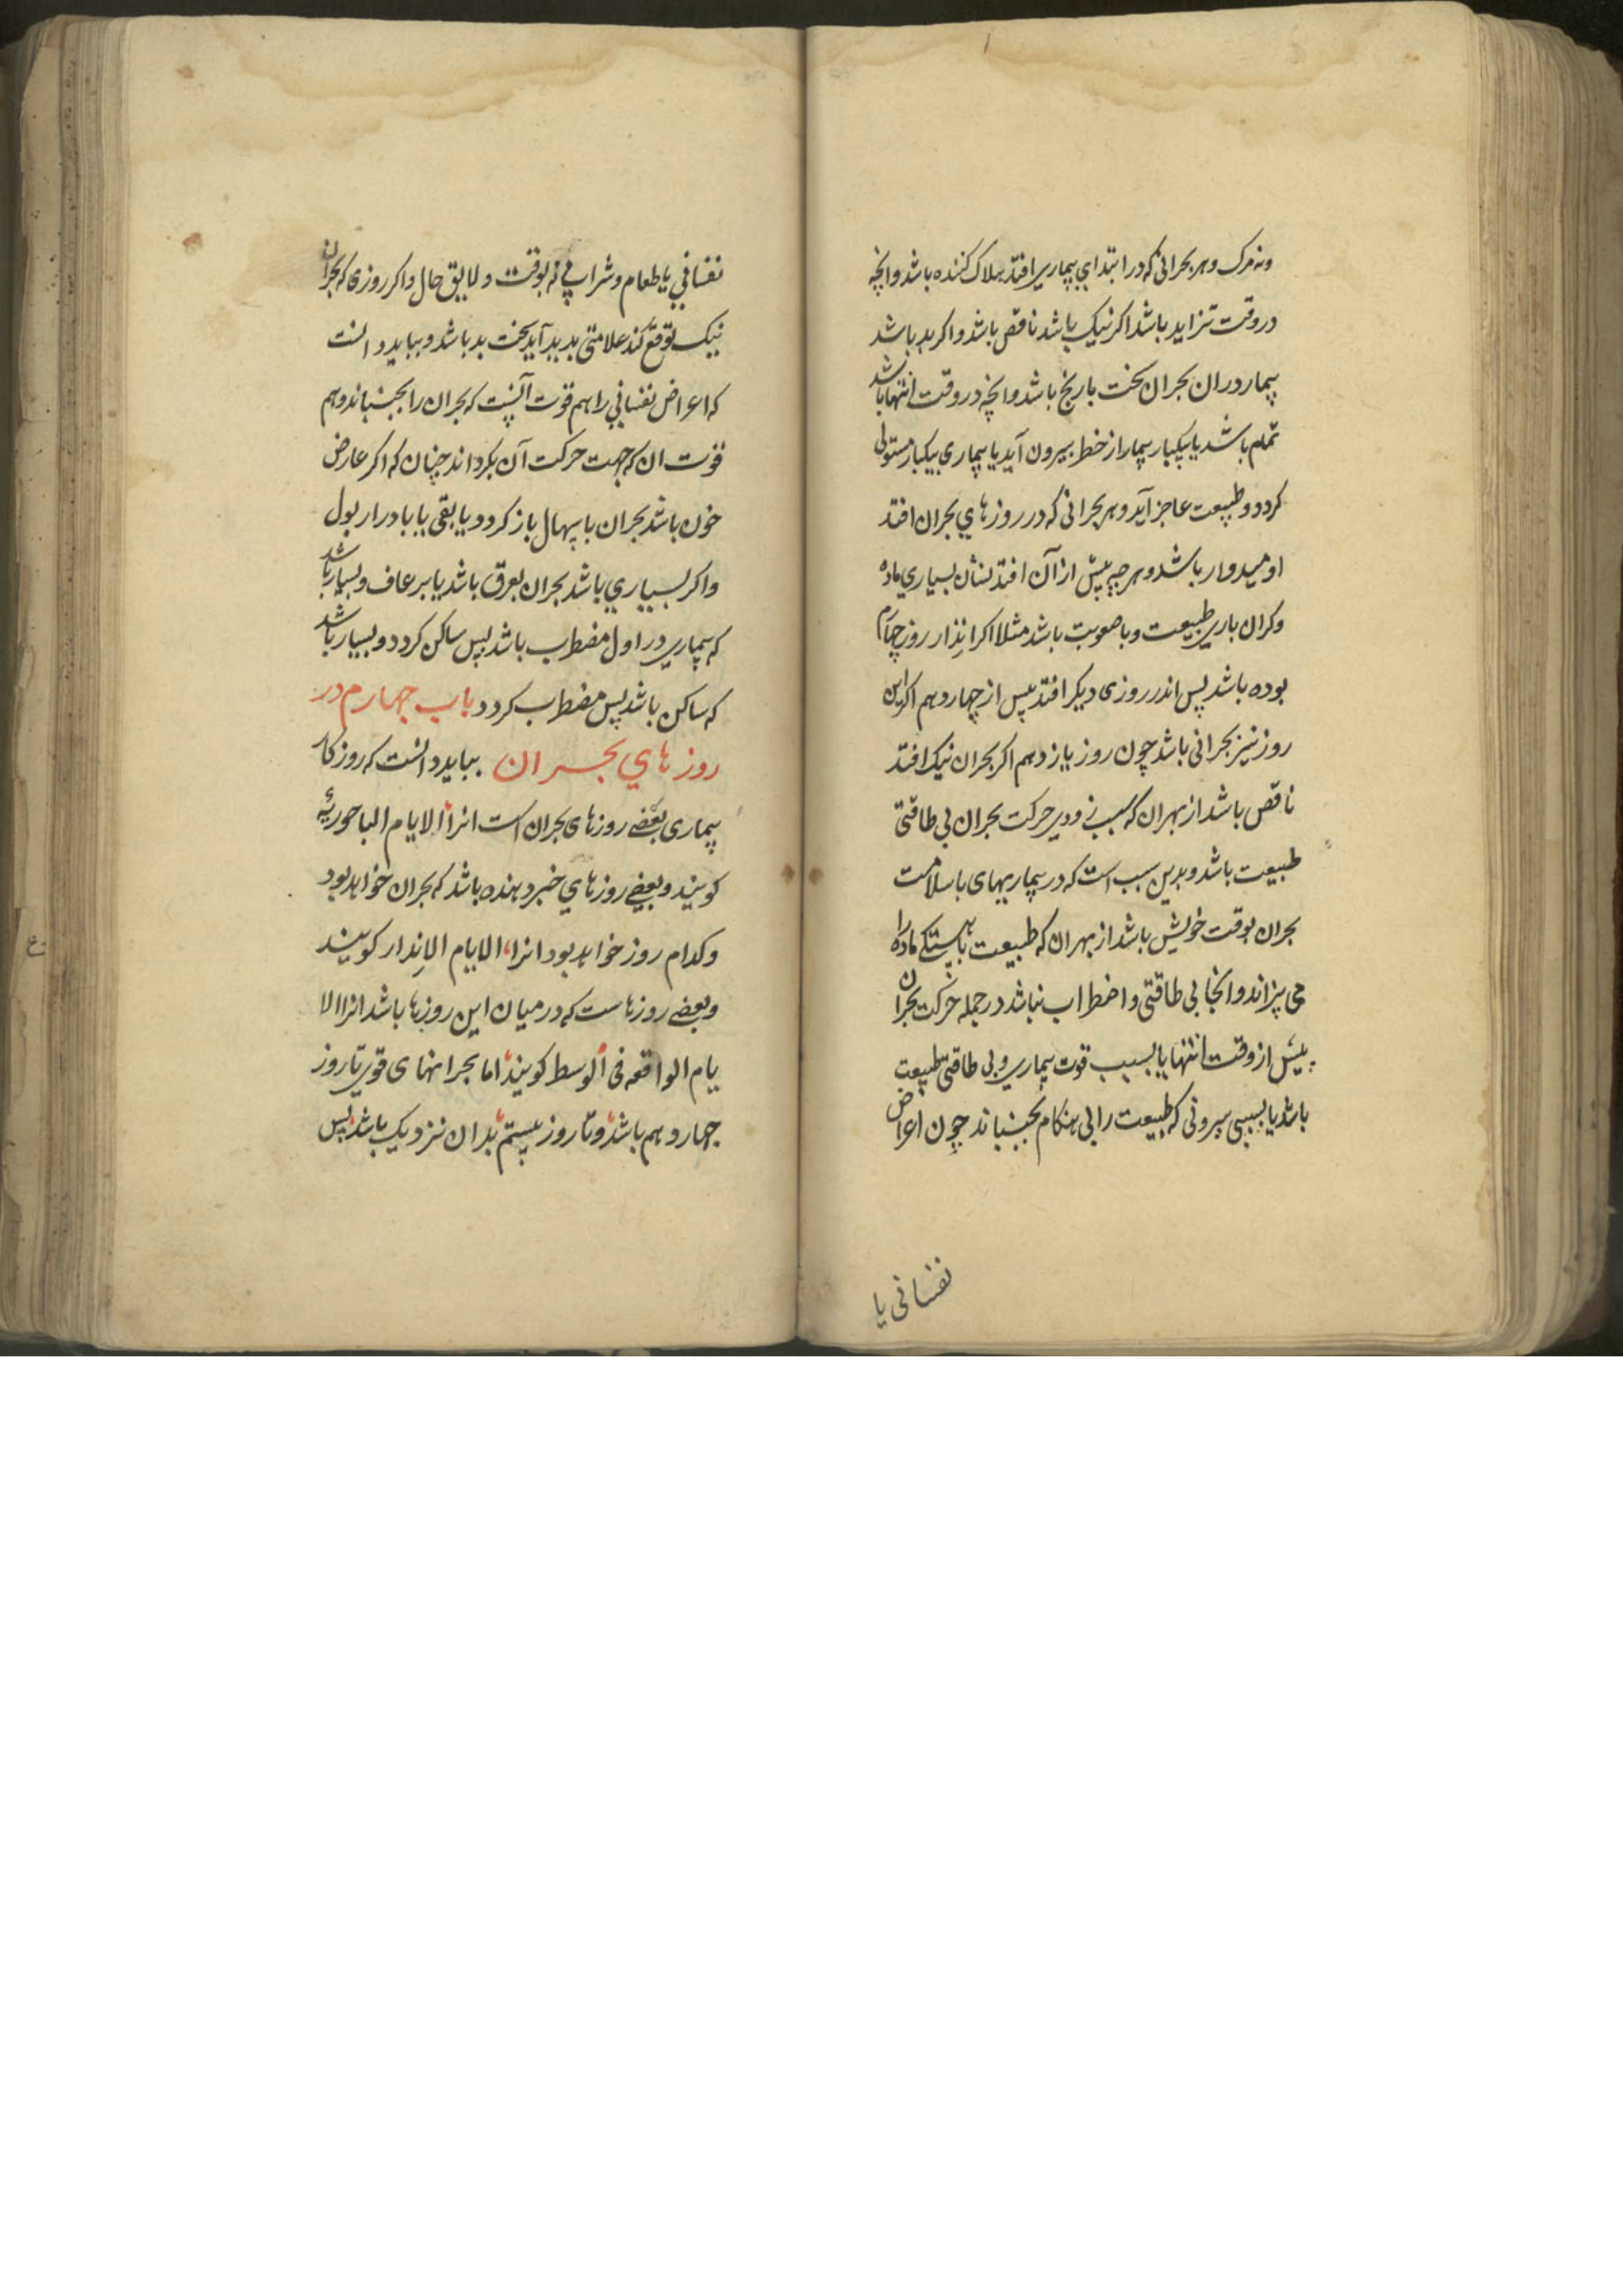 ونه مرک وهر بحرانی که در ابتدای بیماری افتد هلاک کننده باشد وانچه
در وقت تزاید باشد اکر نیک باشد ناقص باشد واکر بد باشد
بیمار در ان بحران سخت با رنج باشد وانچه در وقت انتها باشد
تمام باشد یا بیکبار بیمار از خطر بیرون آید یا بیماری بیکبار مستولی
کردد وطبیعت عاجز آید وهر بحرانی که در روزهای بحران افتد
اومیدوار باشد وهر چه پیش از آن افتد نشان بسیاری ماده
وکران باری طبیعت وبا صعوبت باشد مثلا اکر انذار روز چهارم
بوده باشد پس اندر روزی دیکر افتد پیش از چهاردهم اکر این
روز نیز بحرانی باشد چون روز یازدهم اکر بحران نیک افتد
ناقص باشد از بهر ان که سبب زودی حرکت بحران بی طاقتی
طبیعت باشد وبدین سبب است که در بیماریهای باسلامت
بحران بوقت خویش باشد از بهر ان که طبیعت باهستکی ماده را
می پزاند وانجا بی طاقتی واضطراب نباشد در جمله حرکت بحران
پیش از وقت انتها یا بسبب قوت بیماری وبی طاقتی طبیعت
باشد یا بسببی بیرونی که طبیعت را بی هنکام بجنباند چون اعراض
نفسانی یا
نفسانی یا طعام وشرابی نه بوقت ولایق حال واکر روزی که بحران
نیک توقع کند علامتی بد بدید آید سخت بد باشد وبباید دانست
که اعراض نفسانی را هم قوت آنست که بحران را بجنباند وهم
قوت ان که جهت حرکت آن بکرداند چنان که اکر عارض
خون باشد بحران باسهال باز کردد ویا بقی یا بادرار بول
واکر بسیاری باشد بحران بعرق باشد یا برعاف وبسیار باشد
که بیماری در اول مضطرب باشد پس ساکن کردد وبسیار باشد
که ساکن باشد پس مضطرب کردد باب چهارم در
روزهای بحران بباید دانست که روزکار
بیماری بعضی روزهای بحران است انرا الایام الباحوریة
کویند وبعضی روزهای خبر دهنده باشد که بحران خواهد بود
وکدام روز خواهد بود انرا الایام الانذار کویند
وبعضی روزهاست که در میان این روزها باشد انرا الا
یام الواقعه فی الوسط کویند اما بحرانهای قوی تا روز
چهاردهم باشد وتا روز بیستم بدان نزدیک باشد پس